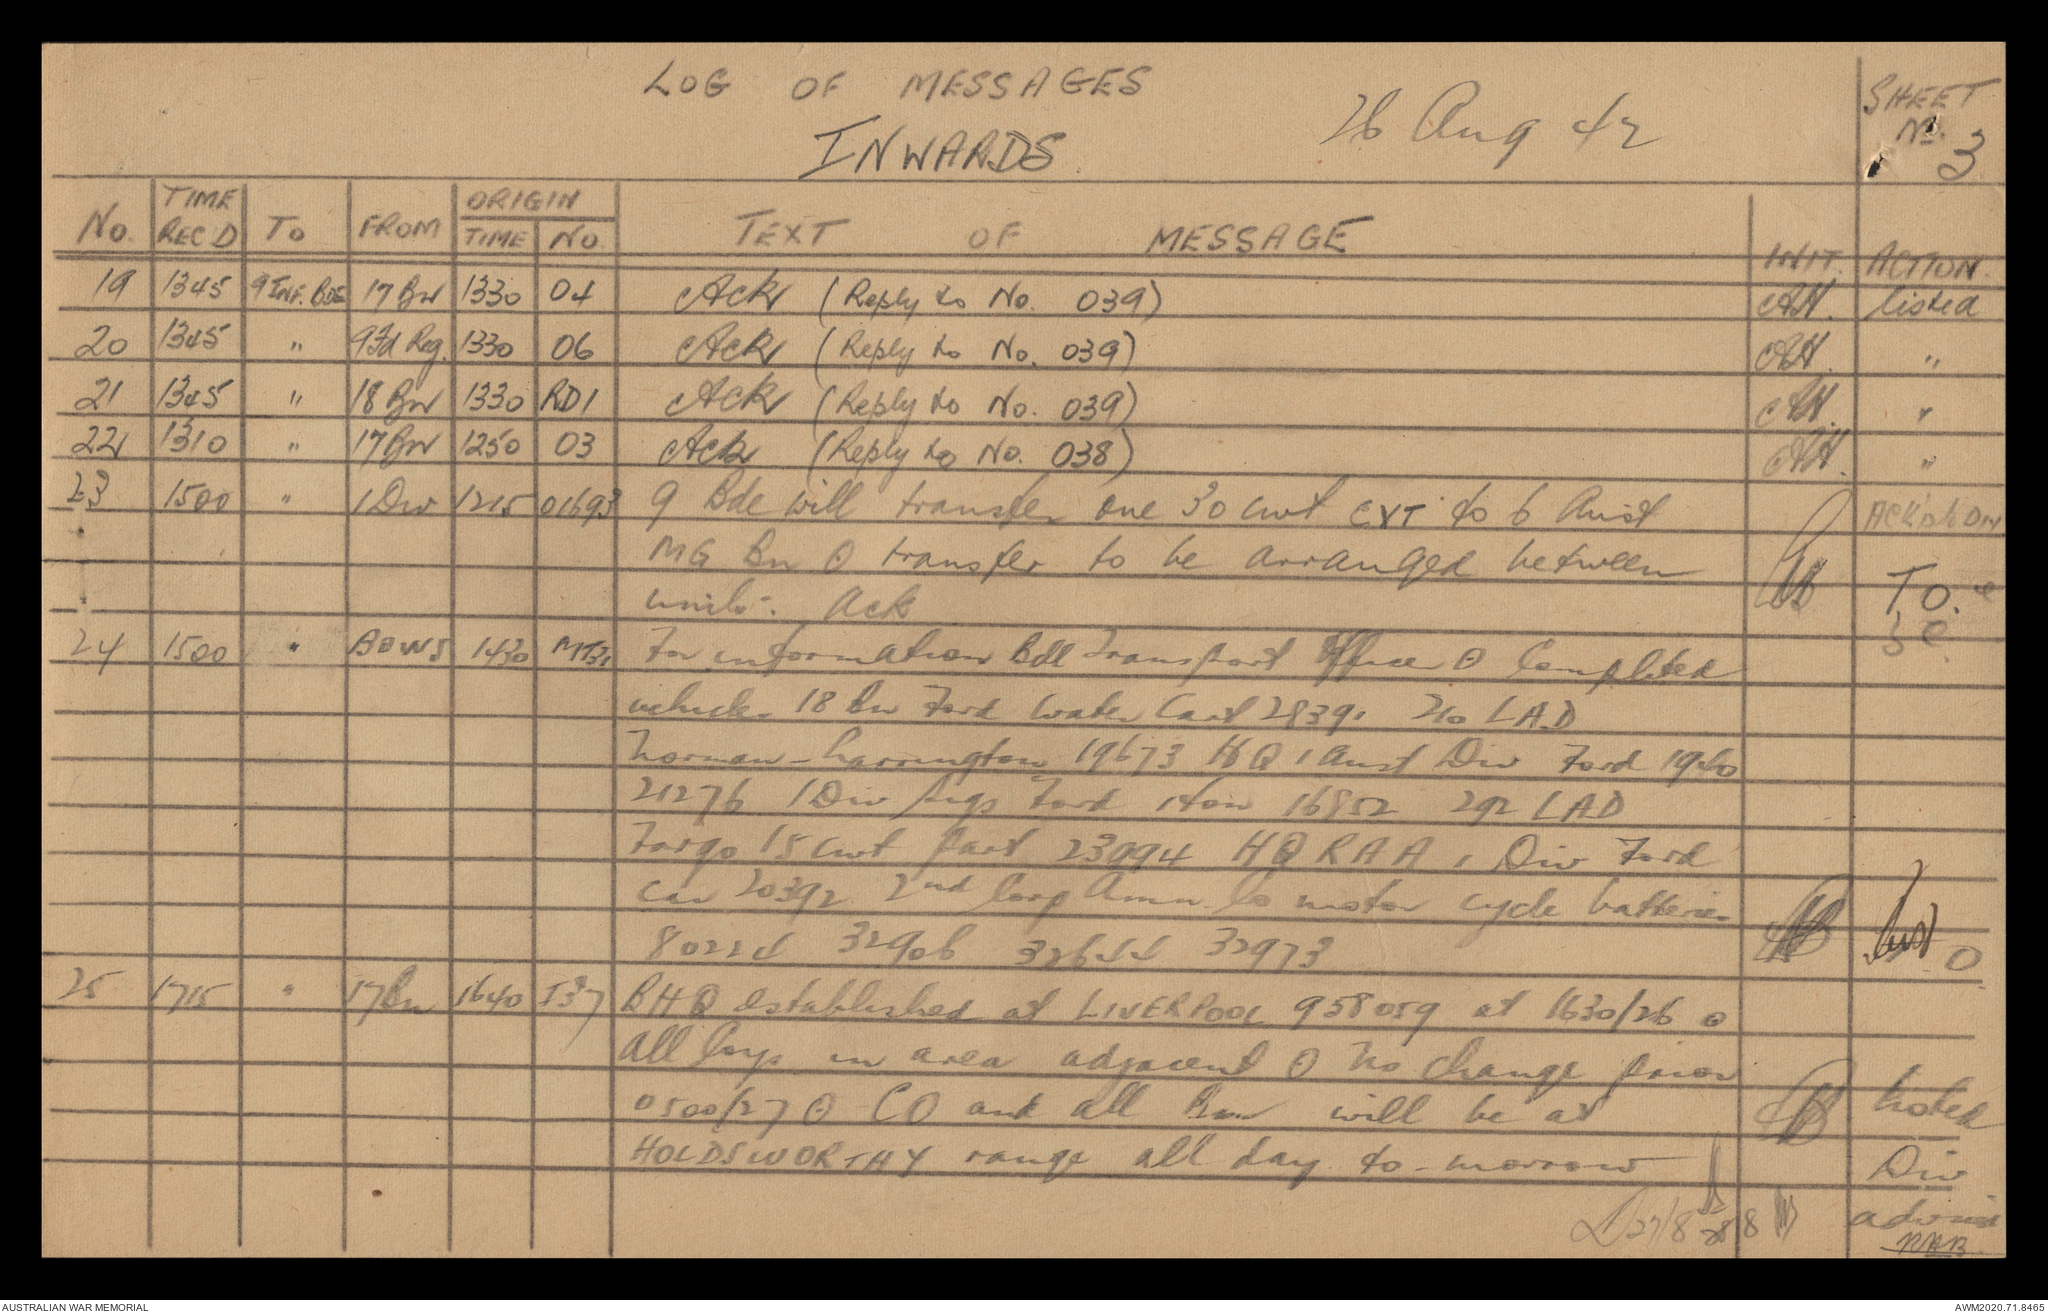 LOG OF MESSAGES
INWARDS
26 Aug 42
SHEET
No. 3
No. TIME REC'D TO FROM ORIGIN TIME NO. TEXT OF MESSAGE INIT. ACTION.
19 1345 9 INF. BDE 17 Bn 1330 04 Ack (Reply to No. 039) AH. listed
20 1345 " 9 Fd Reg. 1330 06 Ack (Reply to No. 039) AH. "
21 1345 " 18 Bn 1330 RD1 Ack (Reply to No. 039) AH. "
22 1310 " 17 Bn 1250 03 Ack (Reply to No. 038) AH. "
23 1500 " 1 Div 1215 01693 9 Bde will transfer one 30 cwt CVT to 6 Aust ACK'd to Div
MG Bn O transfer to be arranged between T.O.
units. Ack S C
24 1500 " BOWS 1430 MT31 For information Bde Transport Officer O Completed
vehicles 18 Bn Ford Water Cart 28391 210 LAD
Norman-Carrington 19673 HQ 1 Aust Div Ford 1940
21276 1 Div Sigs Ford 1 ton 16852 292 LAD
Fargo 15 cwt part 23994 HQ RAA 1 Div Ford
car 20392 2nd Corp Amn Co motor cycle batteries
80224 32906 32644 32973
25 1715 " 17 Bn 1640 I37 BHQ established at LIVERPOOL 958059 at 1630/26 O
All Coys in area adjacent O No change prior
0500/27 O CO and all will be at Noted
HOLDSWORTHY range all day to-morrow Div
27/8 advised
RHB
AUSTRALIAN WAR MEMORIAL
AWM2020.71.8465